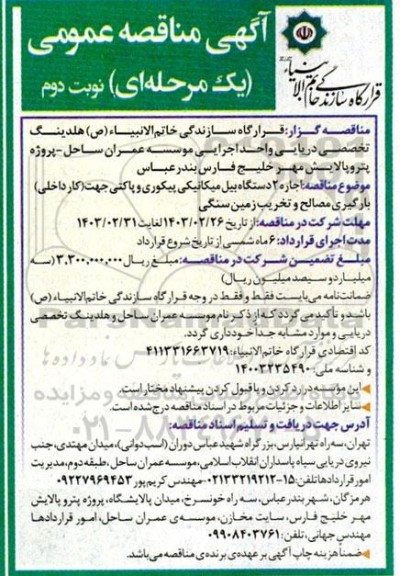 آگهی مناقصه عمومی
(یک مرحله‌ای) نوبت دوم
قرارگاه سازندگی خاتم الانبیاء
مناقصه گزار: قرارگاه سازندگی خاتم الانبیاء (ص) هلدینگ
تخصصی دریایی واحد اجرایی موسسه عمران ساحل -پروژه
پتروپالایش مهر خلیج فارس بندرعباس
موضوع مناقصه: اجاره ۲ دستگاه بیل مکانیکی پیکوری و پاکتی جهت (کار داخلی)
بارگیری مصالح و تخریب زمین سنگی
مهلت شرکت در مناقصه: از تاریخ ۱۴۰۳/۰۲/۲۶ لغایت ۱۴۰۳/۰۲/۳۱
مدت اجرای قرارداد: ۶ ماه شمسی از تاریخ شروع قرارداد
مبلغ تضمین شرکت در مناقصه: مبلغ ریال ۳,۳۰۰,۰۰۰,۰۰۰ (سه
میلیارد و سیصد میلیون ریال)
ضمانت‌نامه می‌بایست فقط و فقط در وجه قرارگاه سازندگی خاتم الانبیاء (ص)
باشد و تأکید می گردد که از ذکر نام موسسه عمران ساحل و هلدینگ تخصصی
دریایی و موارد مشابه جداً خودداری گردد.
کد اقتصادی قرارگاه خاتم الانبیاء: ۴۱۱۳۳۱۶۶۳۷۱۹
و شناسه ملی: ۱۴۰۰۳۲۳۵۴۹۰
این موسسه در رد کردن و یا قبول کردن پیشنهاد مختار است.
سایر اطلاعات و جزئیات مربوط در اسناد مناقصه درج شده است.
آدرس جهت دریافت و تسلیم اسناد مناقصه:
تهران، سه راه تهرانپارس، بزرگراه شهید عباس دوران (اسب دوانی)، میدان مهتدی، جنب
نیروی دریایی سپاه پاسداران انقلاب اسلامی، موسسه عمران ساحل، طبقه دوم، مدیریت
امور قراردادها تلفن: ۱۵-۰۲۱۳۳۲۱۹۲۱۲ -مهندس کریم پور ۰۹۲۲۷۹۶۹۴۵۳
هرمزگان، شهر بندرعباس، سه راه خونسرخ، میدان پالایشگاه، پروژه پترو پالایش
مهر خلیج فارس، سایت مخازن، موسسه‌ی عمران ساحل، امور قراردادها
مهندس جهانی، تلفن: ۰۹۹۰۸۴۰۳۷۶۱
ضمناً هزینه چاپ آگهی بر عهده‌ی برنده‌ی مناقصه می‌باشد.